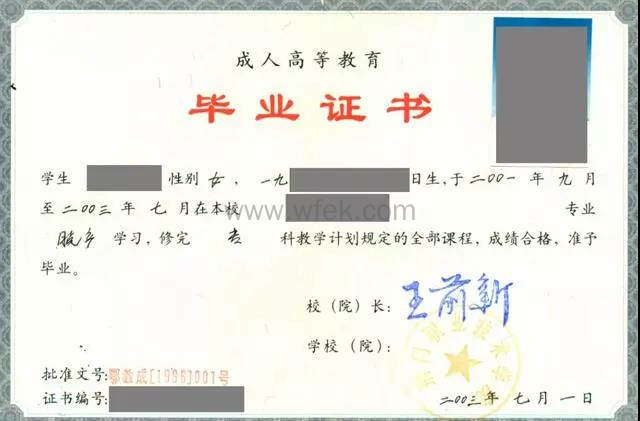 成人高等教育
毕业证书
学生 性别 女，一九 日生，于二〇〇一年九月
至二〇〇三年七月在本校 专业
脱产 学习，修完 专 科教学计划规定的全部课程，成绩合格，准予
毕业。
www.wfek.com
校（院）长：王前新
学校（院）：
门职业技术学
批准文号：鄂教成[1996]001号
证书编号：
二〇〇三年七月一日